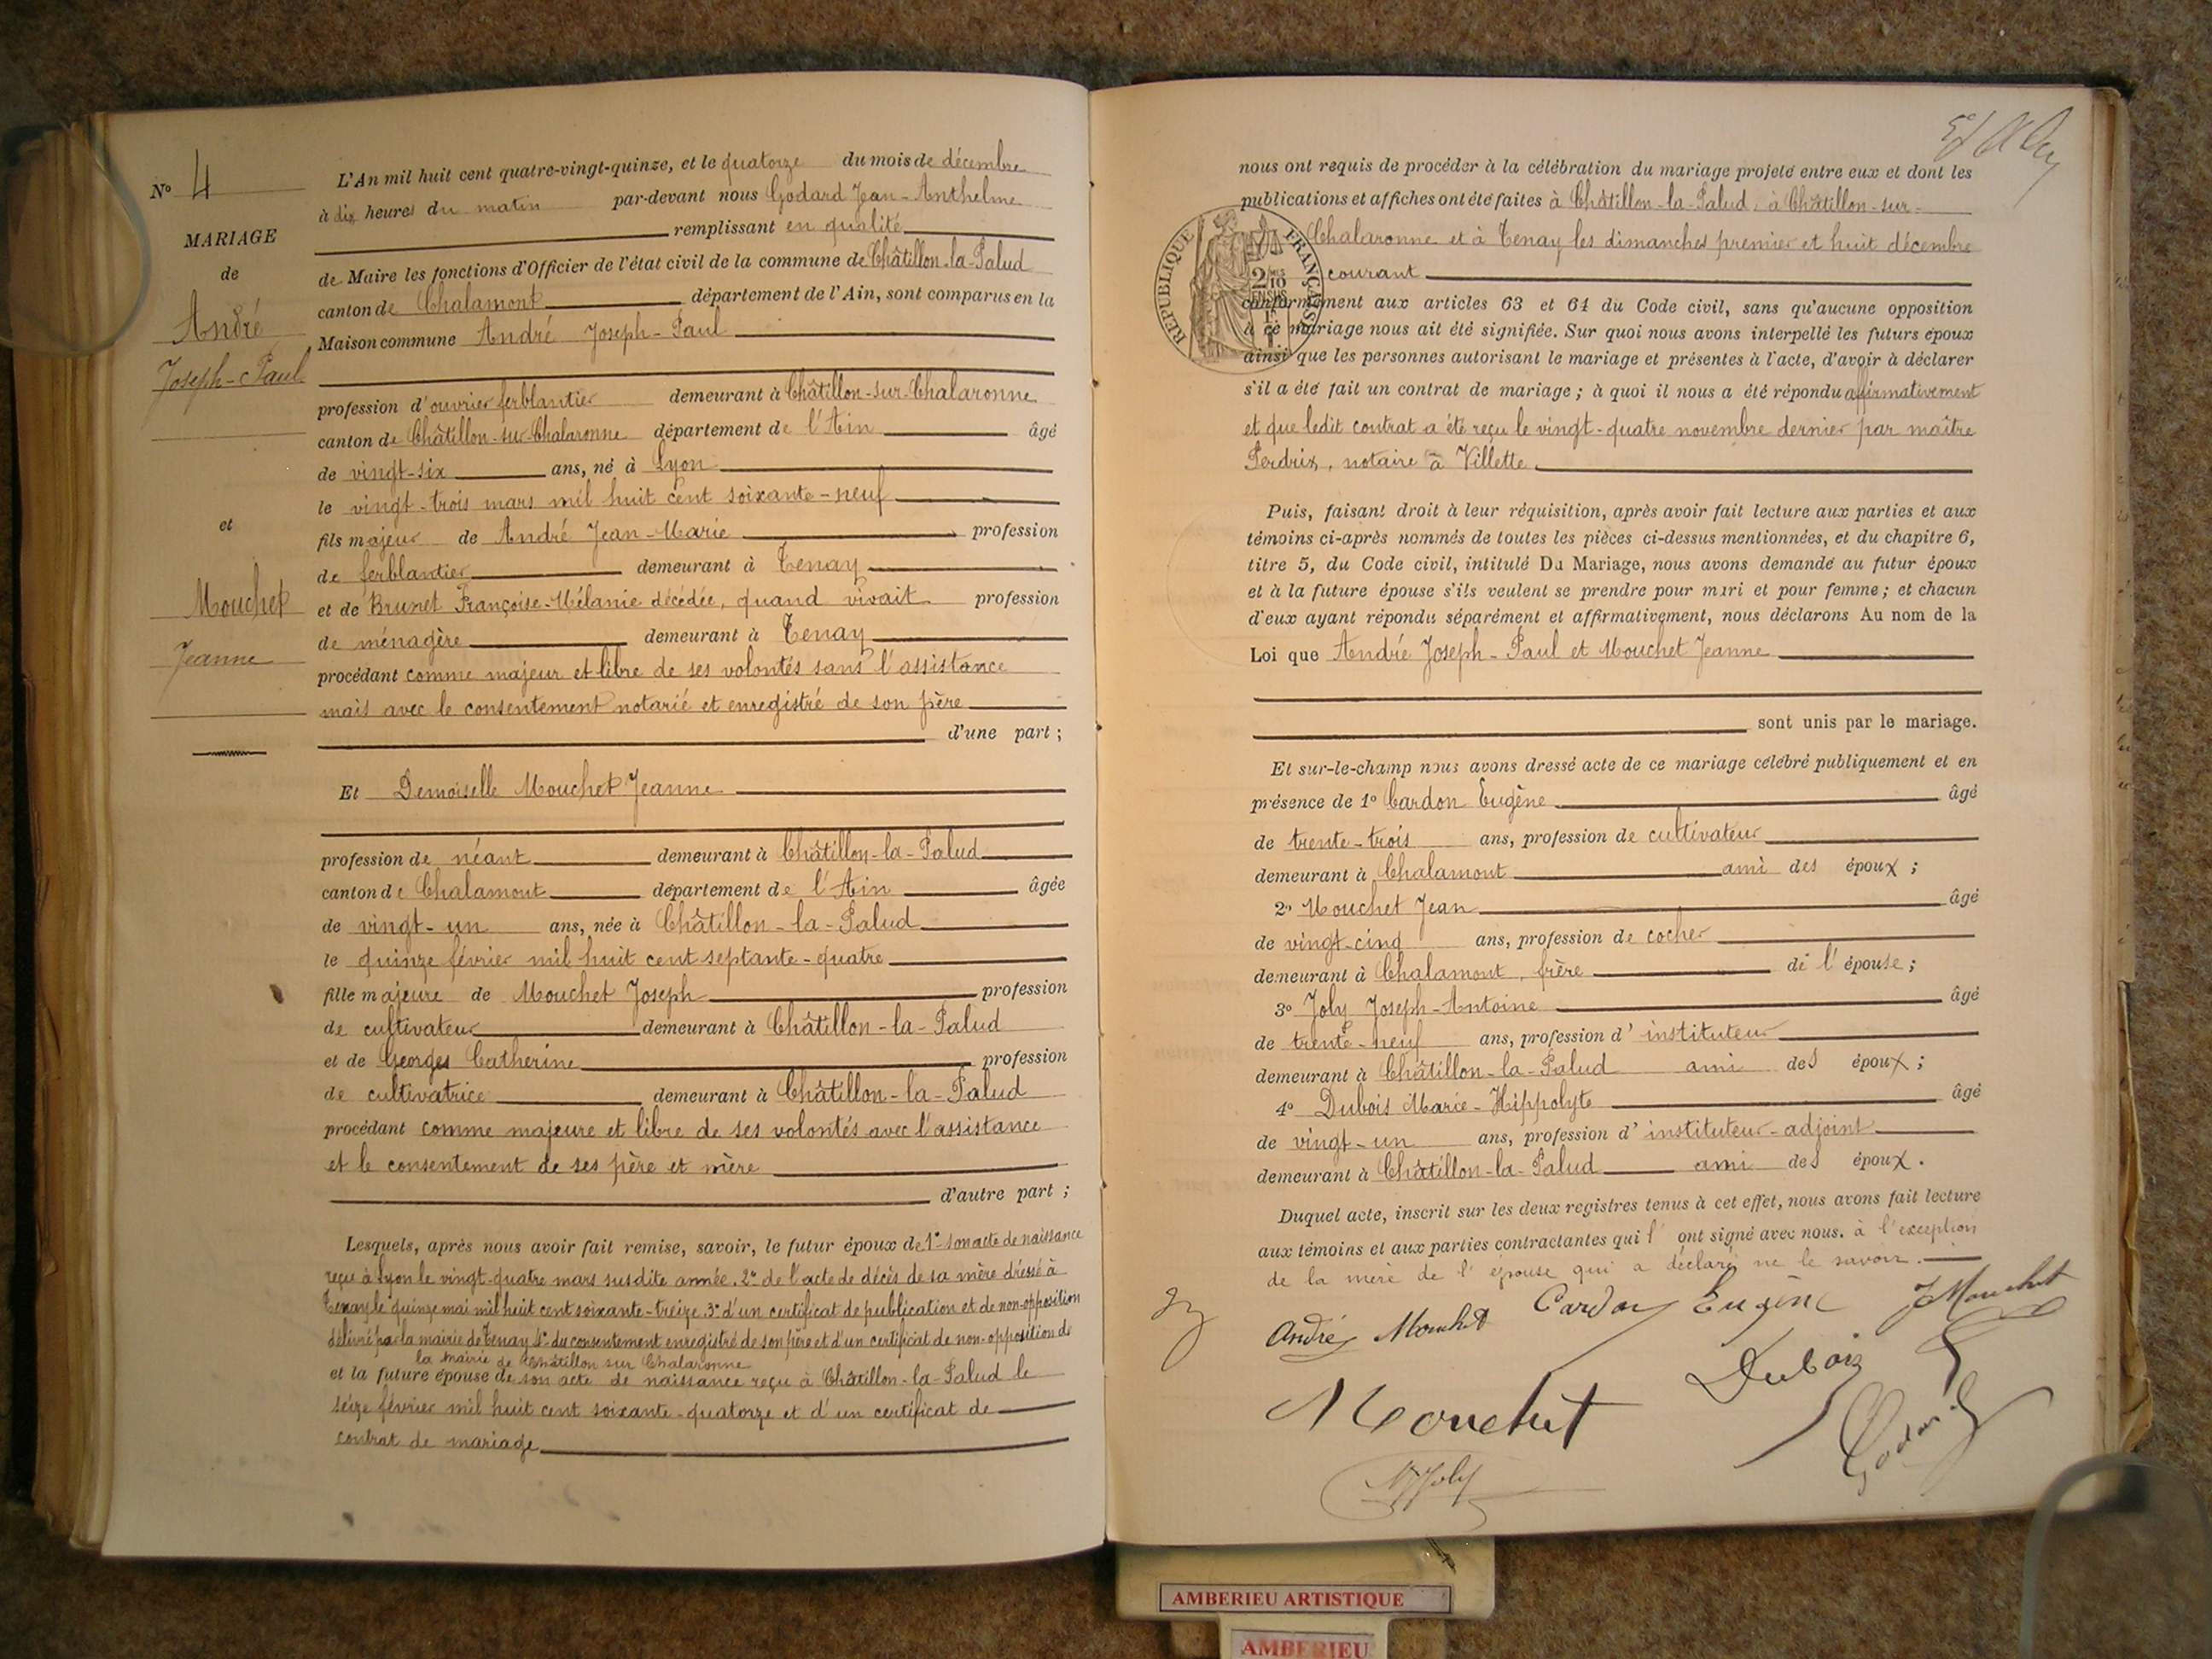 N° 4
MARIAGE
de
André
Joseph-Paul
et
Mouchet
Jeanne
L'An mil huit cent quatre-vingt-quinze, et le quatorze du mois de décembre
à dix heures du matin par-devant nous Godard Jean-Anthelme
remplissant en qualité
de Maire les fonctions d'Officier de l'état civil de la commune de Châtillon-la-Palud
canton de Chalamont département de l'Ain, sont comparus en la
Maison commune André Joseph-Paul
profession d'ouvrier ferblantier demeurant à Châtillon-sur-Chalaronne
canton de Châtillon-sur-Chalaronne département de l'Ain âgé
de vingt-six ans, né à Lyon
le vingt-trois mars mil huit cent soixante-neuf
fils majeur de André Jean-Marie profession
de ferblantier demeurant à Tenay
et de Brunet Françoise-Mélanie décédée, quand vivait profession
de ménagère demeurant à Tenay
procédant comme majeur et libre de ses volontés sans l'assistance
mais avec le consentement notarié et enregistré de son père
d'une part ;
Et Demoiselle Mouchet Jeanne
profession de néant demeurant à Châtillon-la-Palud
canton de Chalamont département de l'Ain âgée
de vingt-un ans, née à Châtillon-la-Palud
le quinze février mil huit cent septante-quatre
fille majeure de Mouchet Joseph profession
de cultivateur demeurant à Châtillon-la-Palud
et de Georges Catherine profession
de cultivatrice demeurant à Châtillon-la-Palud
procédant comme majeure et libre de ses volontés avec l'assistance
et le consentement de ses père et mère
d'autre part ;
Lesquels, après nous avoir fait remise, savoir, le futur époux de 1° son acte de naissance
reçu à Lyon le vingt-quatre mars susdite année. 2° de l'acte de décès de sa mère dressé à
Tenay le quinze mai mil huit cent soixante-treize. 3° d'un certificat de publication et de non-opposition
délivré par la mairie de Tenay 4° du consentement enregistré de son père et d'un certificat de non-opposition de
la mairie de Châtillon sur Chalaronne
et la future épouse de son acte de naissance reçu à Châtillon-la-Palud le
seize février mil huit cent soixante-quatorze et d'un certificat de
contrat de mariage
nous ont requis de procéder à la célébration du mariage projeté entre eux et dont les
publications et affiches ont été faites à Châtillon-la-Palud, à Châtillon-sur-
Chalaronne et à Tenay les dimanches premier et huit décembre
courant
RÉPUBLIQUE FRANÇAISE
2/10
EN SUS
conformément aux articles 63 et 64 du Code civil, sans qu'aucune opposition
à ce mariage nous ait été signifiée. Sur quoi nous avons interpellé les futurs époux
ainsi que les personnes autorisant le mariage et présentes à l'acte, d'avoir à déclarer
s'il a été fait un contrat de mariage ; à quoi il nous a été répondu affirmativement
et que ledit contrat a été reçu le vingt-quatre novembre dernier par maître
Perdrix, notaire à Villette
Puis, faisant droit à leur réquisition, après avoir fait lecture aux parties et aux
témoins ci-après nommés de toutes les pièces ci-dessus mentionnées, et du chapitre 6,
titre 5, du Code civil, intitulé Du Mariage, nous avons demandé au futur époux
et à la future épouse s'ils veulent se prendre pour mari et pour femme ; et chacun
d'eux ayant répondu séparément et affirmativement, nous déclarons Au nom de la
Loi que André Joseph-Paul et Mouchet Jeanne
sont unis par le mariage.
Et sur-le-champ nous avons dressé acte de ce mariage célébré publiquement et en
présence de 1° Cardon Eugène âgé
de trente-trois ans, profession de cultivateur
demeurant à Chalamont ami des époux ;
2° Mouchet Jean âgé
de vingt-cinq ans, profession de cocher
demeurant à Chalamont, frère de l'épouse ;
3° Joly Joseph-Antoine âgé
de trente-neuf ans, profession d'instituteur
demeurant à Châtillon-la-Palud ami des époux ;
4° Dubois Marie-Hippolyte âgé
de vingt-un ans, profession d'instituteur-adjoint
demeurant à Châtillon-la-Palud ami des époux.
Duquel acte, inscrit sur les deux registres tenus à cet effet, nous avons fait lecture
aux témoins et aux parties contractantes qui l'ont signé avec nous. à l'exception
de la mère de l'épouse qui a déclaré ne le savoir.
André Mouchet Cardon Eugène J Mouchet
Mouchet Dubois Godard
Joly
AMBERIEU ARTISTIQUE
AMBERIEU